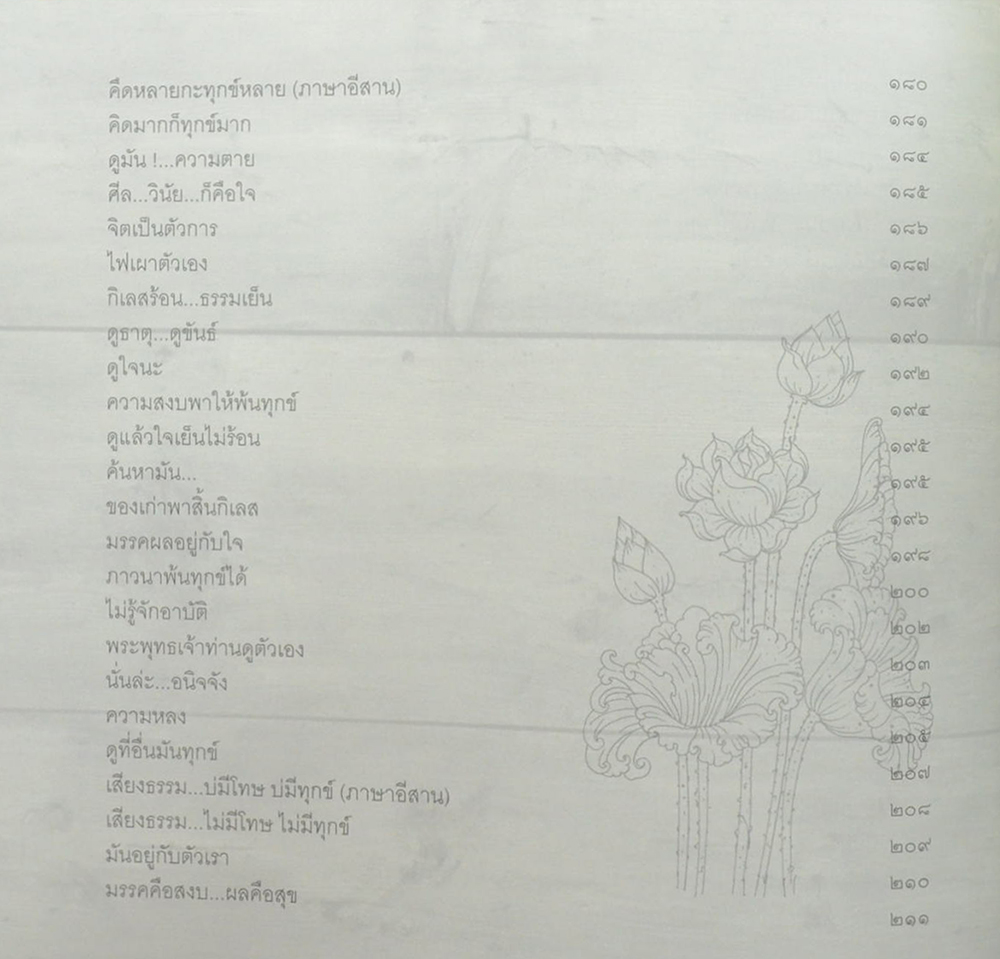 คึดหลายกะทุกข์หลาย (ภาษาอีสาน) ๑๘๐
คิดมากก็ทุกข์มาก ๑๘๑
ดูมัน !...ความตาย ๑๘๔
ศีล...วินัย...ก็คือใจ ๑๘๕
จิตเป็นตัวการ ๑๘๖
ไฟเผาตัวเอง ๑๘๗
กิเลสร้อน...ธรรมเย็น ๑๘๙
ดูธาตุ...ดูขันธ์ ๑๙๐
ดูใจนะ ๑๙๒
ความสงบพาให้พ้นทุกข์ ๑๙๔
ดูแล้วใจเย็นไม่ร้อน ๑๙๕
ค้นหามัน... ๑๙๕
ของเก่าพาสิ้นกิเลส ๑๙๖
มรรคผลอยู่กับใจ ๑๙๘
ภาวนาพ้นทุกข์ได้ ๒๐๐
ไม่รู้จักอาบัติ ๒๐๒
พระพุทธเจ้าท่านดูตัวเอง ๒๐๓
นั่นล่ะ...อนิจจัง ๒๐๔
ความหลง ๒๐๕
ดูที่อื่นมันทุกข์ ๒๐๗
เสียงธรรม...บ่มีโทษ บ่มีทุกข์ (ภาษาอีสาน) ๒๐๘
เสียงธรรม...ไม่มีโทษ ไม่มีทุกข์ ๒๐๙
มันอยู่กับตัวเรา ๒๑๐
มรรคคือสงบ...ผลคือสุข ๒๑๑